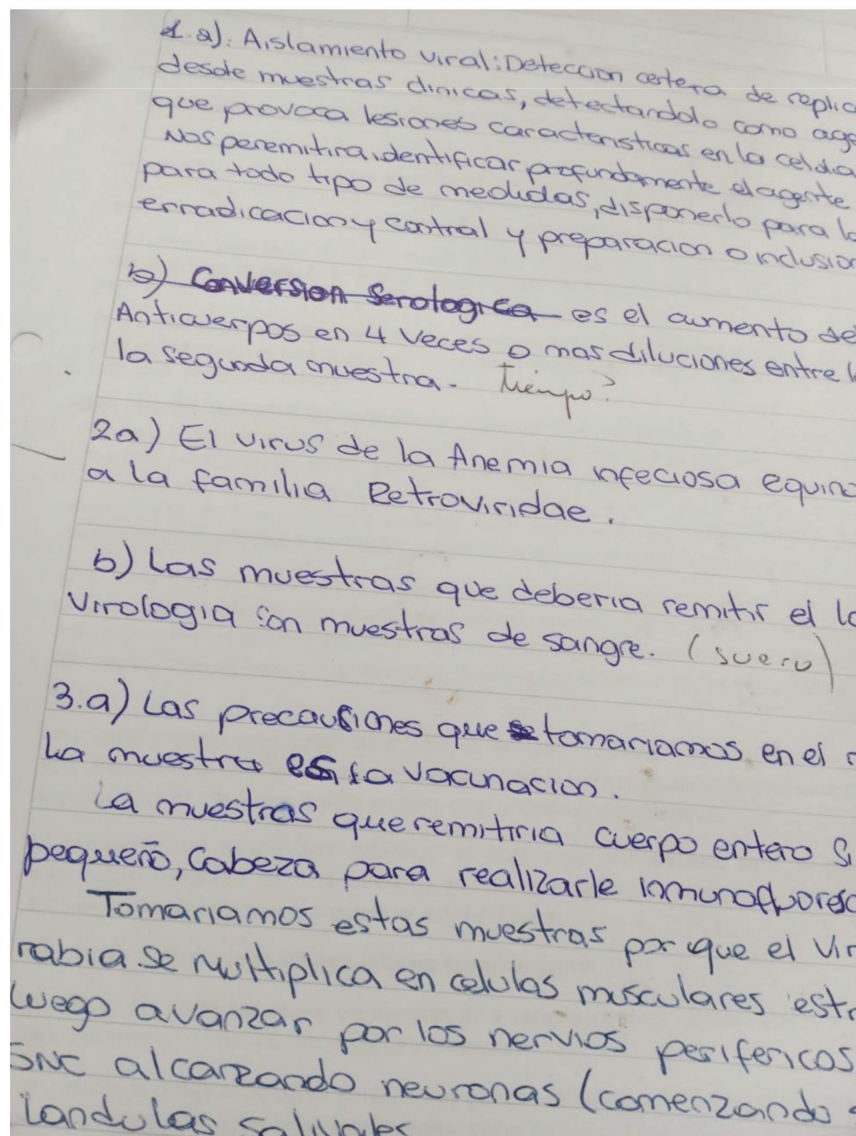 1.a): Aislamiento viral: Detección certera de replic
desde muestras clinicas, detectandolo como age
que provoca lesiones caracteristicas en la celula
Nos peremitira identificar profundamente el agente
para todo tipo de medidas, disponerlo para l
erradicacion y control y preparacion o inclusion
b) Conversion Serologica es el aumento de
Anticuerpos en 4 veces o mas diluciones entre l
la segunda muestra. tiempo?
2a) El virus de la Anemia infeciosa equina
a la familia Retroviridae.
b) Las muestras que deberia remitir el la
Virologia son muestras de sangre. (suero)
3.a) Las precausiones que tomariamos en el
La muestra es la vacunacion.
La muestras que remitiria cuerpo entero si
pequeño, Cabeza para realizarle inmunofluoresc
Tomariamos estas muestras por que el Vir
rabia se multiplica en celulas musculares estr
luego avanzar por los nervios perifericos
SNC alcanzando neuronas (comenzando
landulas salivales